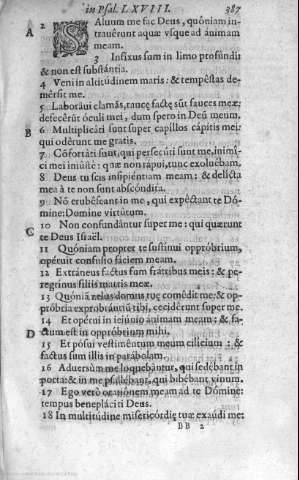 in Psal. LXVIII. 387
A 2 SAluum me fac Deus, quóniam in-
trauérunt aquæ vsque ad ánimam
meam.
3 Infixus sum in limo profúndi:
& non est substántia.
4 Veni in altitúdinem maris: & tempéstas de-
mérsit me.
5 Laboráui clamãs, raucę factę sũt fauces meæ:
defecérũt óculi mei, dum spero in Deũ meum.
B 6 Multiplicáti sunt super capíllos cápitis mei:
qui odérunt me gratis.
7 Cõfortáti sunt, qui persecúti sunt me, inimí-
ci mei iniústè: quæ non rapui, tunc exoluébam.
8 Deus tu scis insipiéntiam meam: & delícta
mea à te non sunt abscóndita.
9 Nõ erubéscant in me, qui expéctant te Dó-
mine: Domine virtútum.
C 10 Non confundántur super me: qui quærunt
te Deus Israël.
11 Quóniam propter te sustínui oppróbrium,
opéruit confusio fáciem meam.
12 Extráneus factus sum frátribus meis: & pe-
regrínus fíliis matris meæ.
13 Quóniã zelus domus tuę comédit me: & op-
próbria exprobrántiũ tibi, cecidérunt super me.
14 Et opérui in ieiúnio ánimam meam: & fa-
D ctum est in oppróbrium mihi.
15 Et pósui vestiméntum meum cilícium: &
factus sum illis in parábolam.
16 Aduersùm me loquebántur, qui sedébant in
porta: & in me psallébant, qui bibébant vinum.
17 Ego verò oratiónem meam ad te Dómine:
tempus beneplácíti Deus.
18 In multitúdine misericórdię tuæ exaúdi me:
BB 2